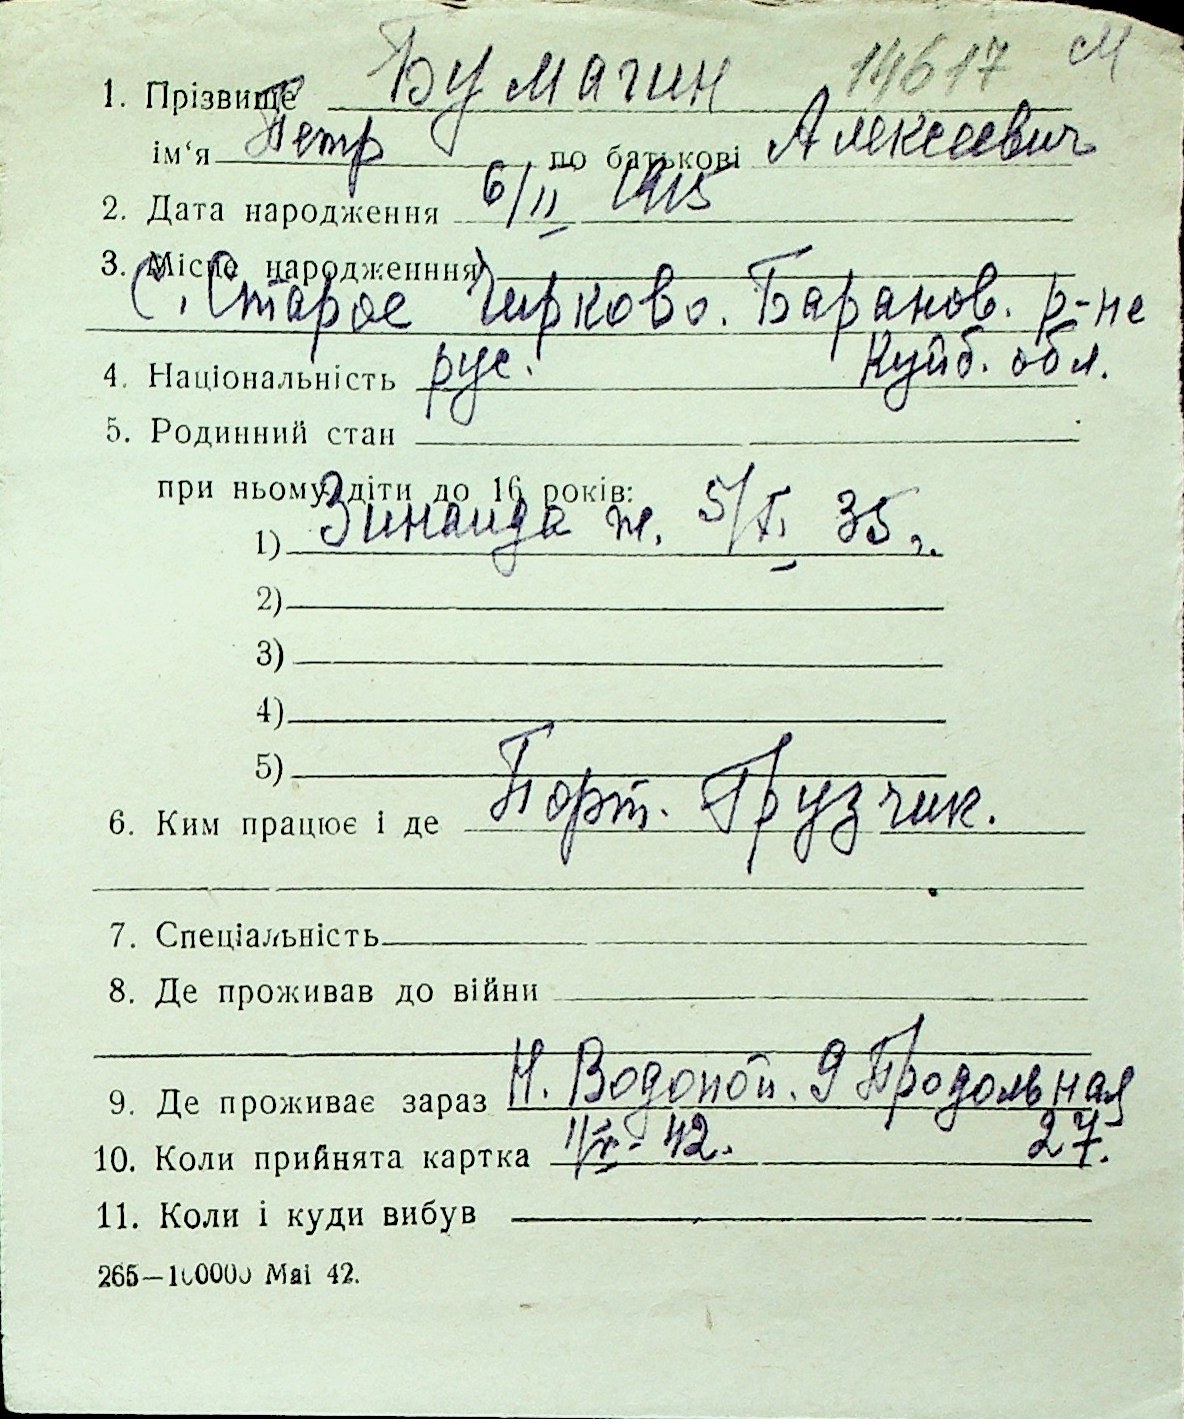 14617 М
1. Прізвище Бумагин
ім‘я Петр по батькові Алексеевич
2. Дата народження 6/II 1915
3. Місце народженння
с. Старое Чирково. Баранов. р-не
4. Національність рус. Куйб. обл.
5. Родинний стан
при ньому діти до 16 років:
1) Зинаида ж. 5/X. 35 г.
2)
3)
4)
5)
6. Ким працює і де Порт. Грузчик.
7. Спеціальність
8. Де проживав до війни
9. Де проживає зараз Н. Водопой. 9 Продольная
10. Коли прийнята картка 42. 27.
11. Коли і куди вибув
265—100000 Маі 42.